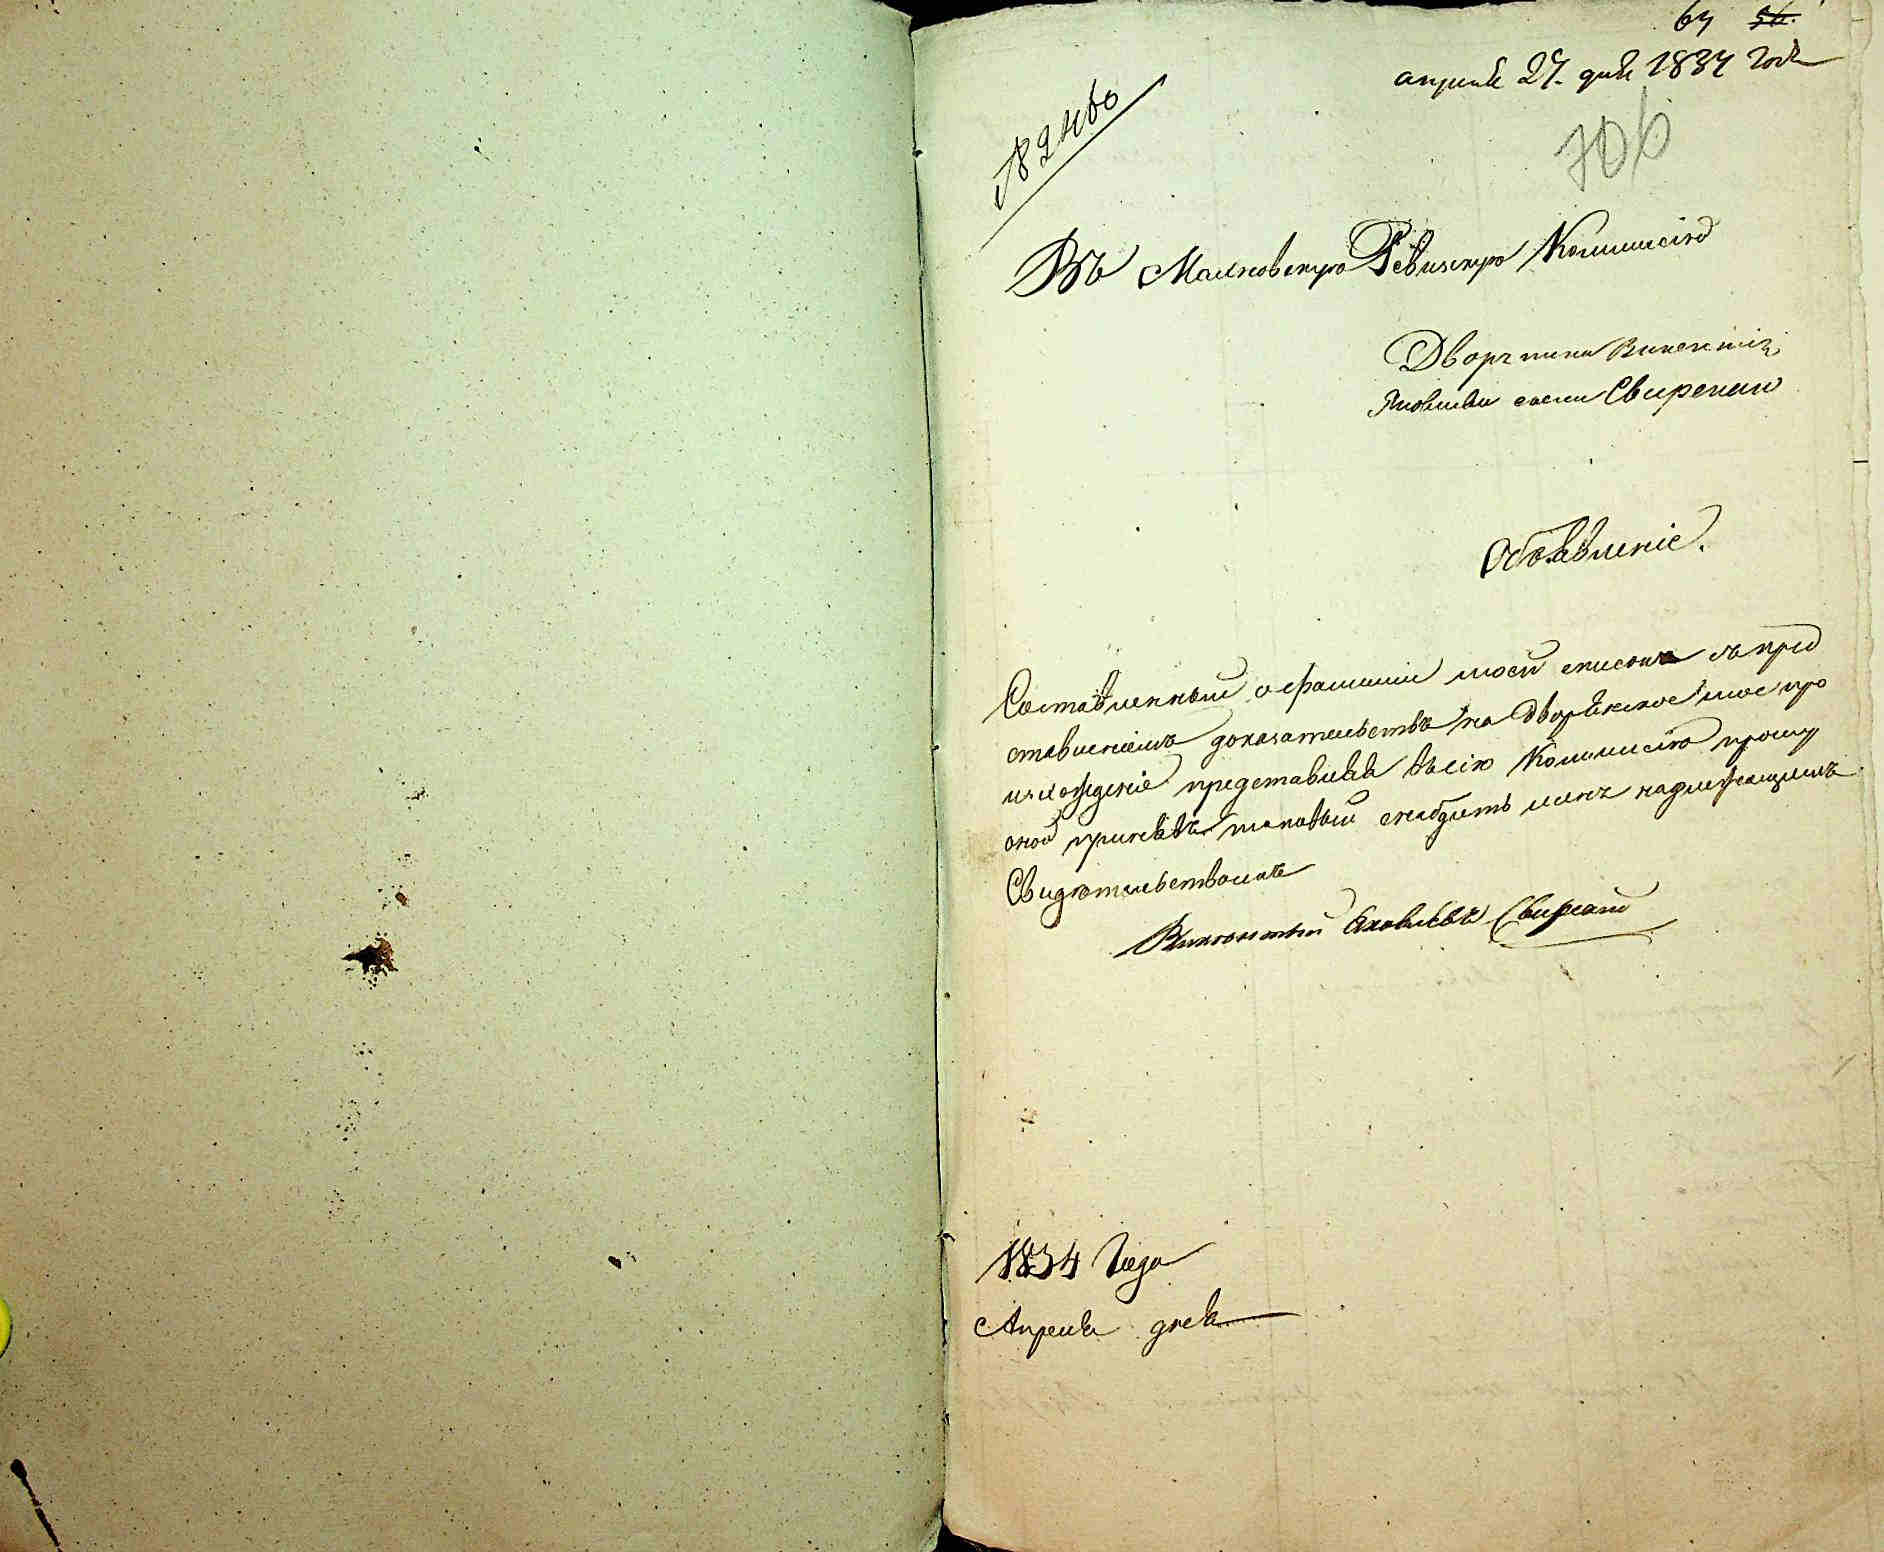 64 56.
апреля 27. дня 1834 года
706
Въ Махновскую Ревизскую Коммисію
Дворянина Викентія
Яковлева сына Свирскаго
Объявленіе.
Составленный о фамиліи моей списокъ съ пред
ставленіемъ доказательствъ на Дворянское мое про
изхожденіе представляя въ сію Коммисію прошу
оной принявъ таковый снабдить меня надлежащимъ
Свидетельствомъ
Викентий Яковлевъ Свирский
1834 Года
Апреля дня